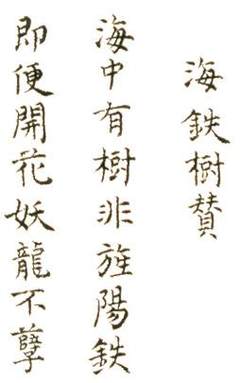 海鉄樹賛
海中有樹非旌陽鉄
即便開花妖龍不孽